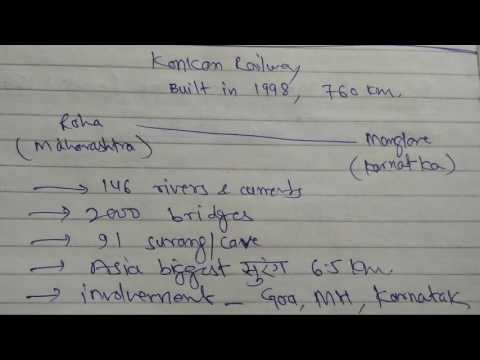 Konkan Railway
Built in 1998, 760 km.
Roha ——— Manglore
(Maharashtra) (Karnatka)
→ 146 rivers & currents
→ 2000 bridges
→ 91 surang/cave
→ Asia biggest सुरंग 6.5 Km.
→ involvement - Goa, MH, Karnatak